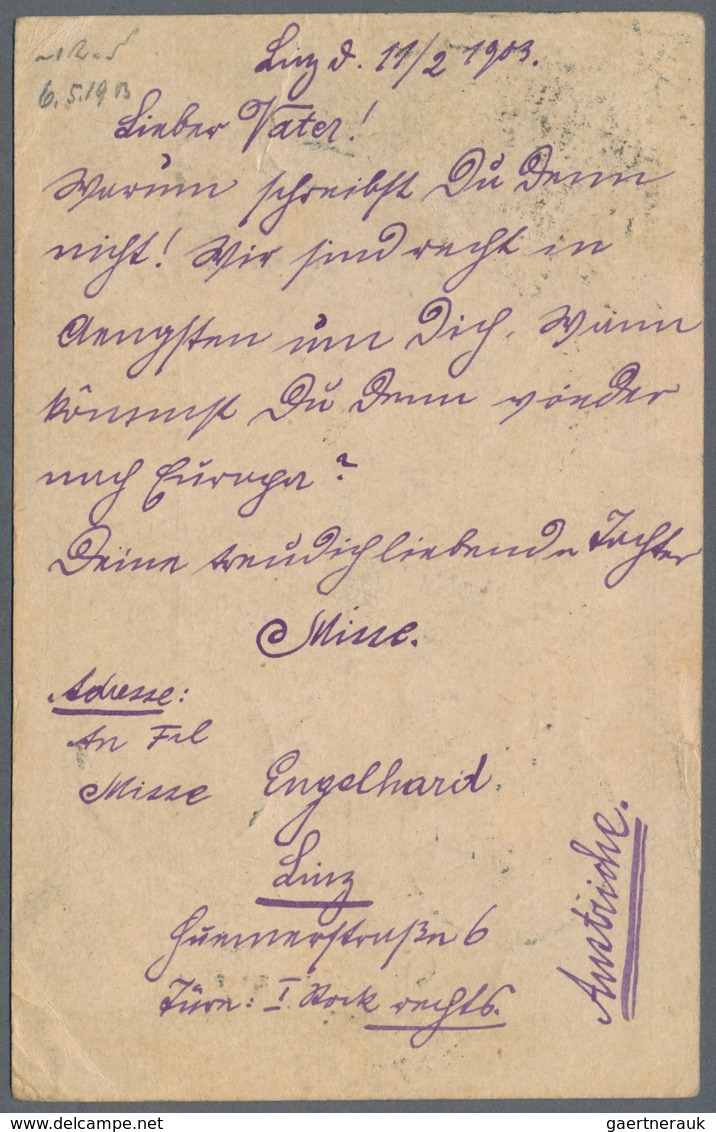 6.5.1903
Linz d. 11/2 1903.
Lieber Vater!
Warum schreibst Du denn
nicht! Wir sind recht in
Aengsten um Dich. Wann
kommst Du denn wieder
nach Europa?
Deine treudichliebende Tochter
Misse.
Adresse:
An Frl
Misse Engelhard.
Linz
Huemerstraße 6
Türe: I Stock rechts.
Austriche.
gaertnerauk